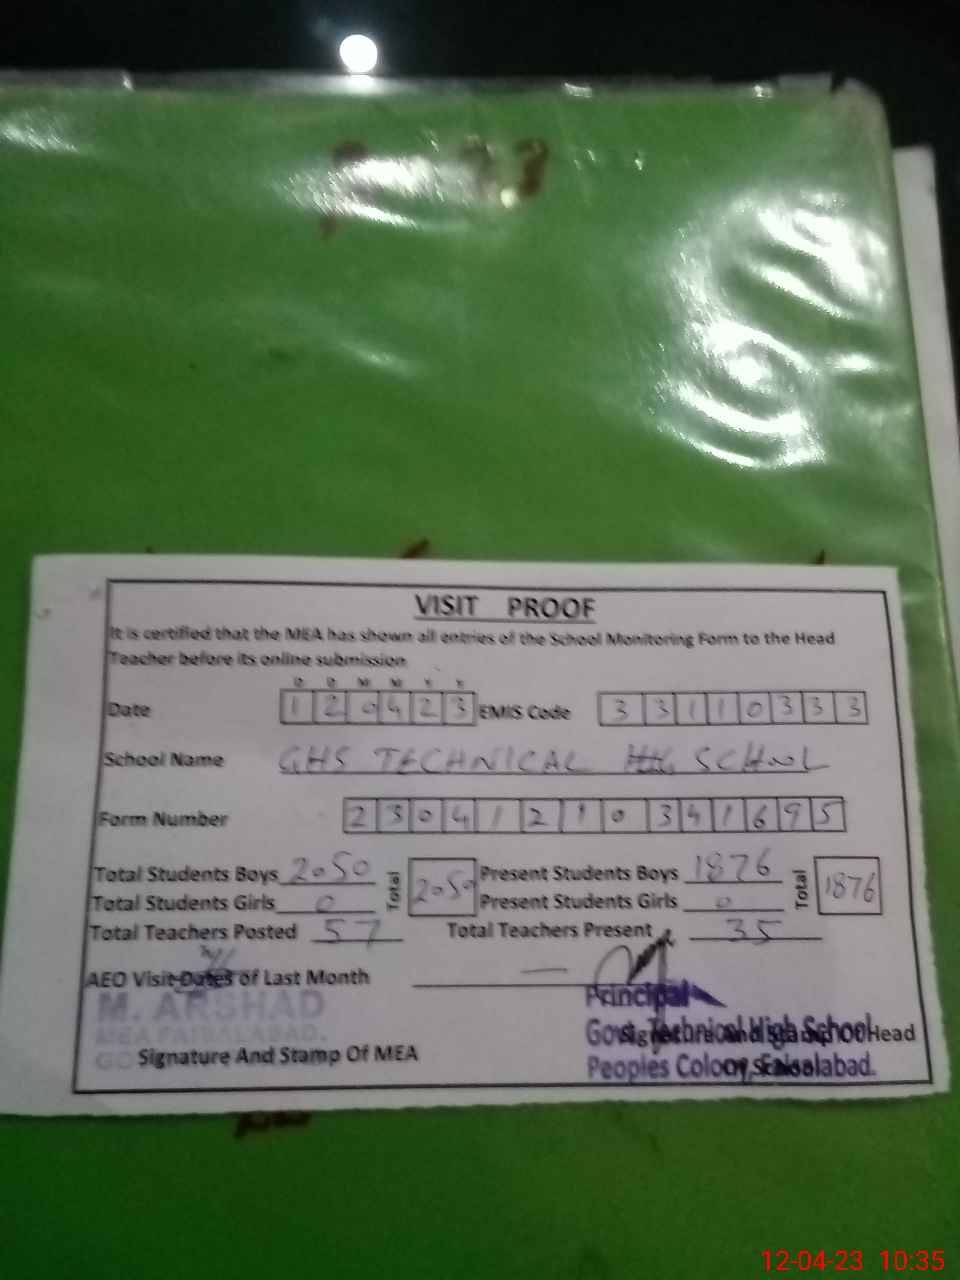 VISIT PROOF
It is certified that the MEA has shown all entries of the School Monitoring Form to the Head
Teacher before its online submission
D D M M Y Y
Date 1 2 0 4 2 3 EMIS Code 3 3 1 1 0 3 3 3
School Name GHS TECHNICAL SCHOOL
Form Number 2 3 0 4 1 2 1 0 3 4 1 6 9 5
Total Students Boys 2050 Total 2050 Present Students Boys 1876 Total 1876
Total Students Girls 0 Present Students Girls 0
Total Teachers Posted 57 Total Teachers Present 35
AEO Visit Dates of Last Month —
M. ARSHAD
MEA FAISALABAD.
Signature And Stamp Of MEA
Principal
Govt. Technical High School
Peoples Colony, Faisalabad.
Signature and Stamp of Head
of School
12-04-23 10:35